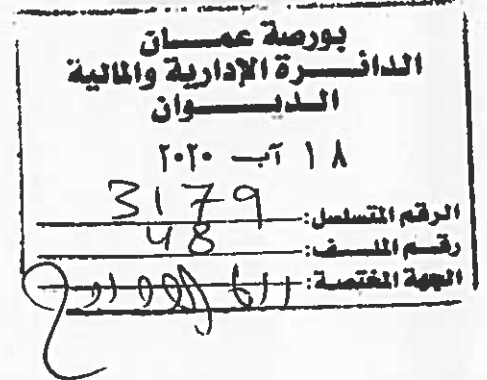 بورصة عمــان
الدائــــرة الإدارية والمالية
الــديــــــوان
١٨ آب ٢٠٢٠
الرقم المتسلسل: 3179
رقــم الملــف: 48
الجهة المختصة: